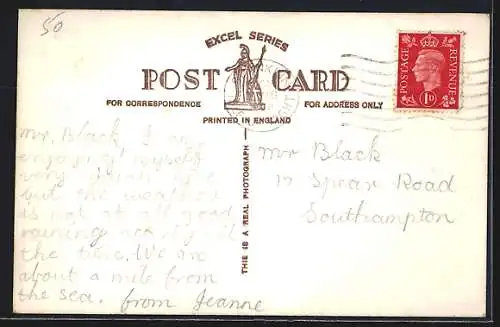 50
EXCEL SERIES
POST CARD
FOR CORRESPONDENCE
FOR ADDRESS ONLY
PRINTED IN ENGLAND
POSTAGE
REVENUE
1D
THIS IS A REAL PHOTOGRAPH
Mr, Black, I am
enjoying myself
very
but the weather
is not at all good
raining nearly all
the time. We are
about a mile from
the sea. from Jeanne
Mr Black
17 Spear Road
Southampton